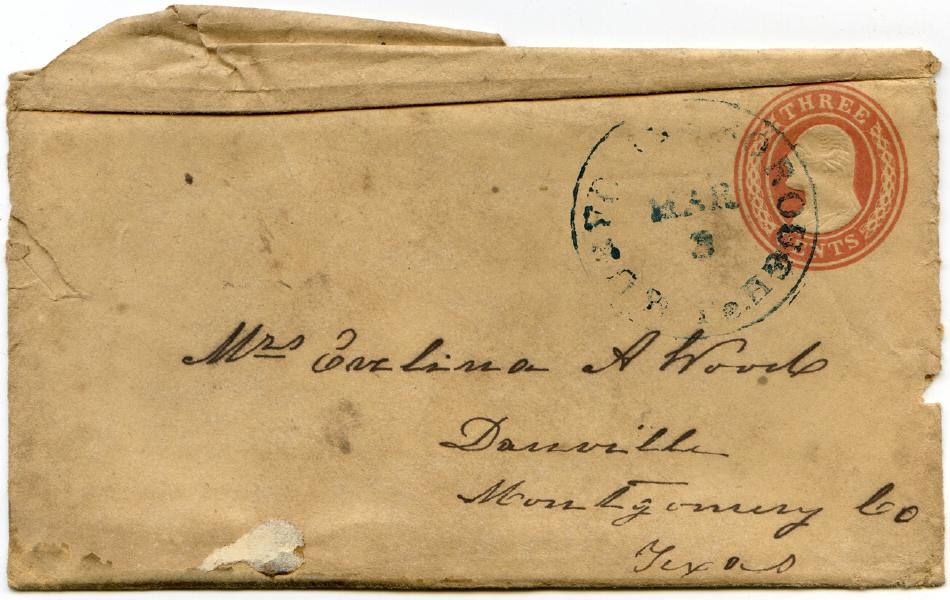 THREE
CENTS
MAR
3
Mrs Evelina A Wood
Danville
Montgomery Co
Texas